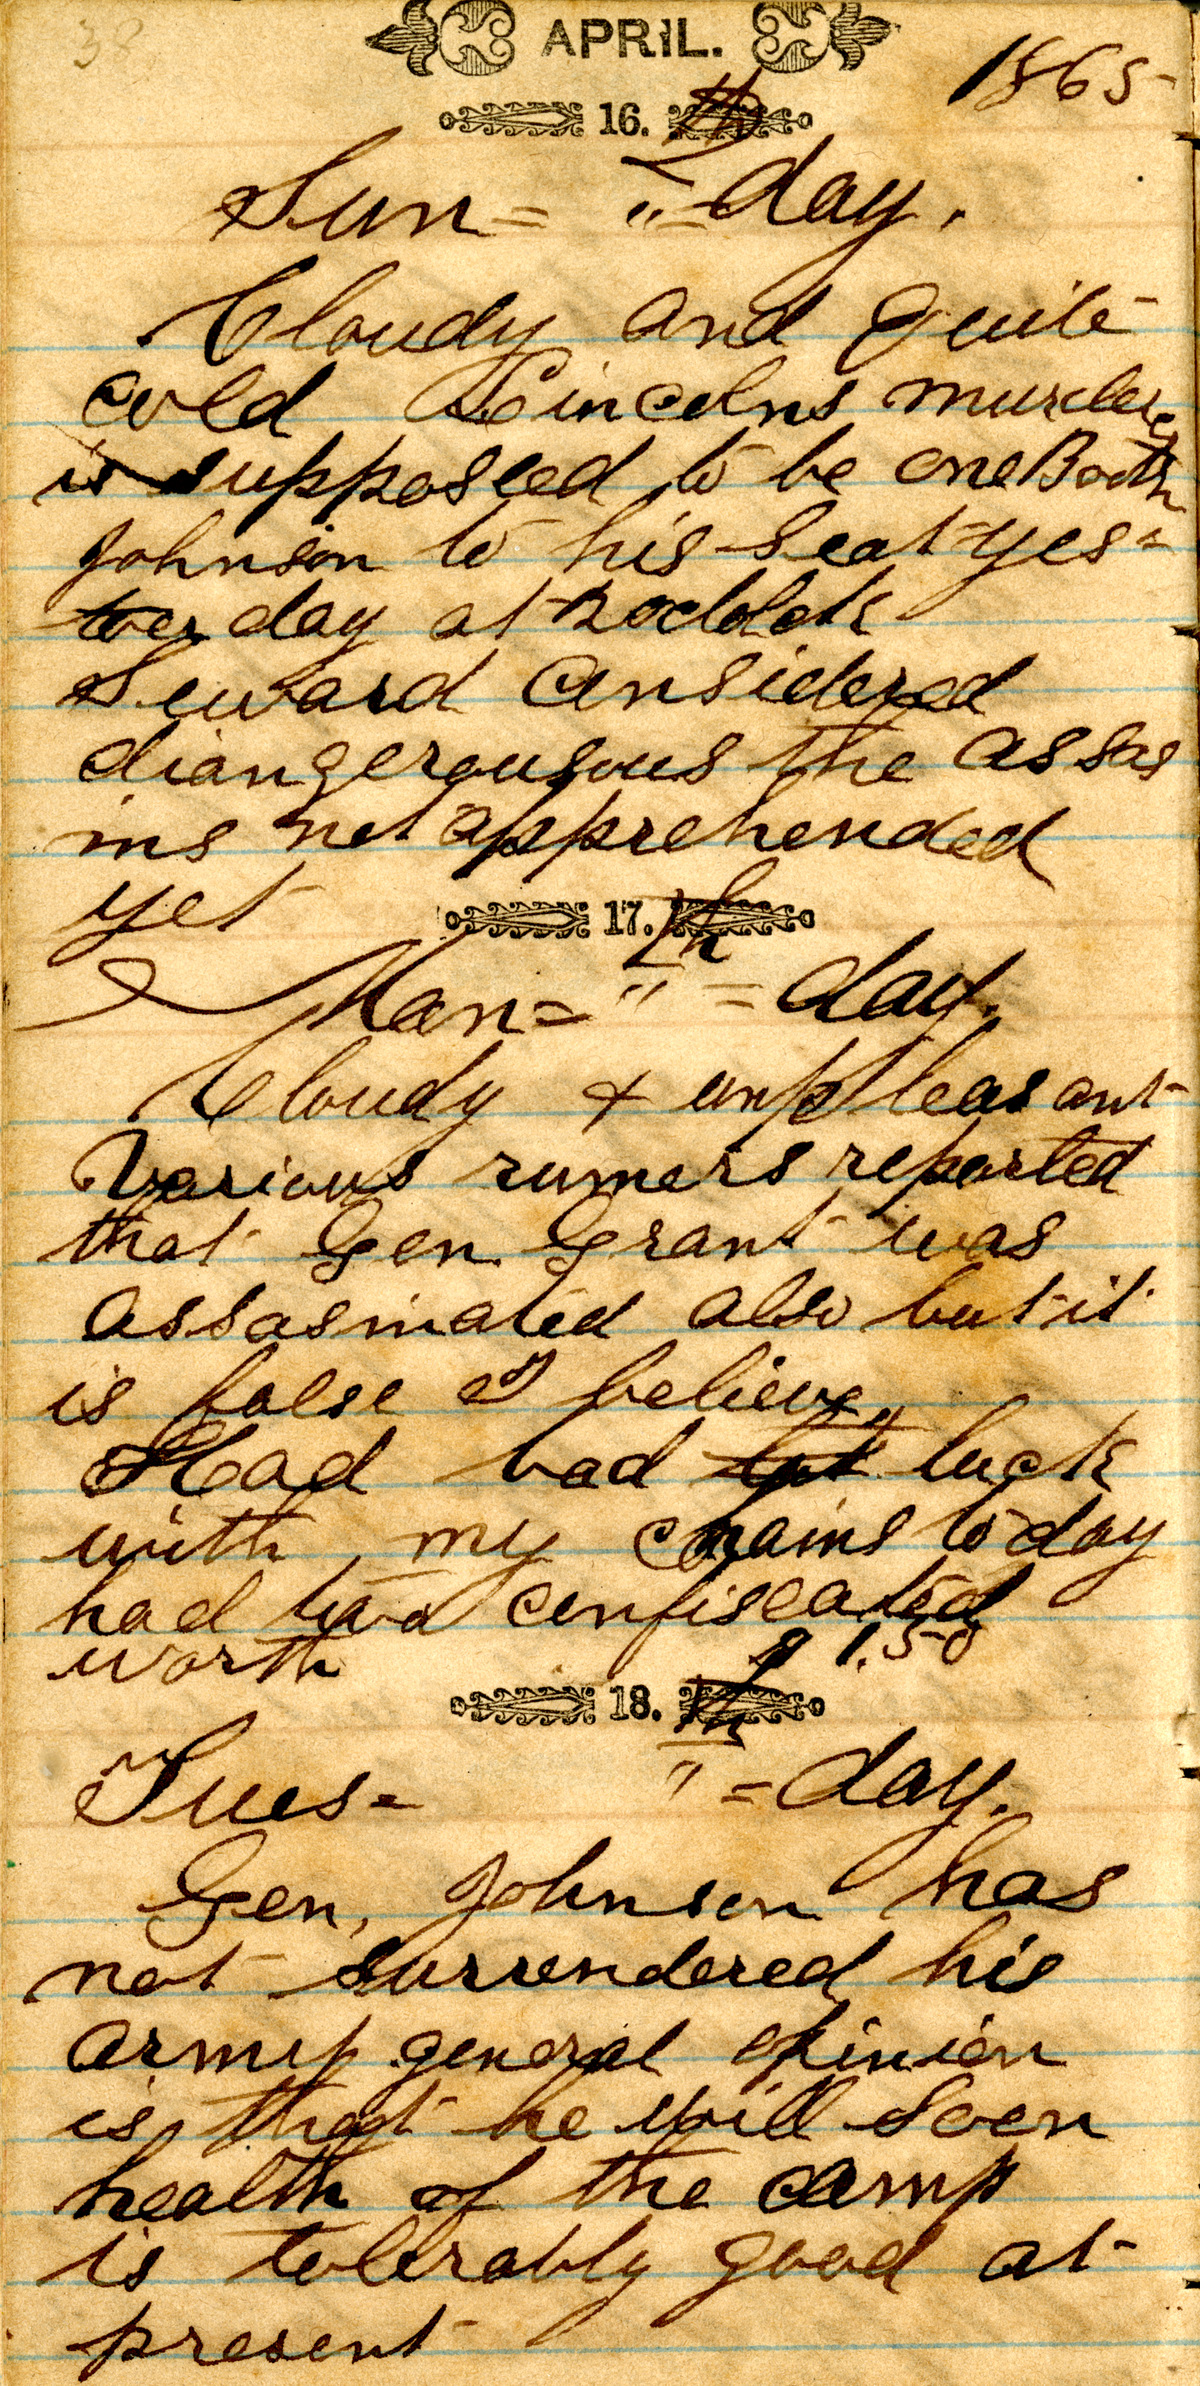 38
APRIL.
1865
16. th
Sun= " =day.
Cloudy and quite
cold Leincolns murder
is supposeed to be one Booth
Johnson to his seat yes=
terday at 12 oclock
Seward considered
diangerousous the assas
ins not apprehended
yet
17. th
Mon= " =day.
Cloudy & unpleasant
Various rumers reported
that Gen. Grant was
assasinated also but it
is false I believe,
Had bad luck
with my chains to day
had two confiscated
worth $1.50
18. th
Tues= " =day.
Gen, Johnson has
not surrendered his
army general opinion
is that he will soon
health of the camp
is tolerably good at
present